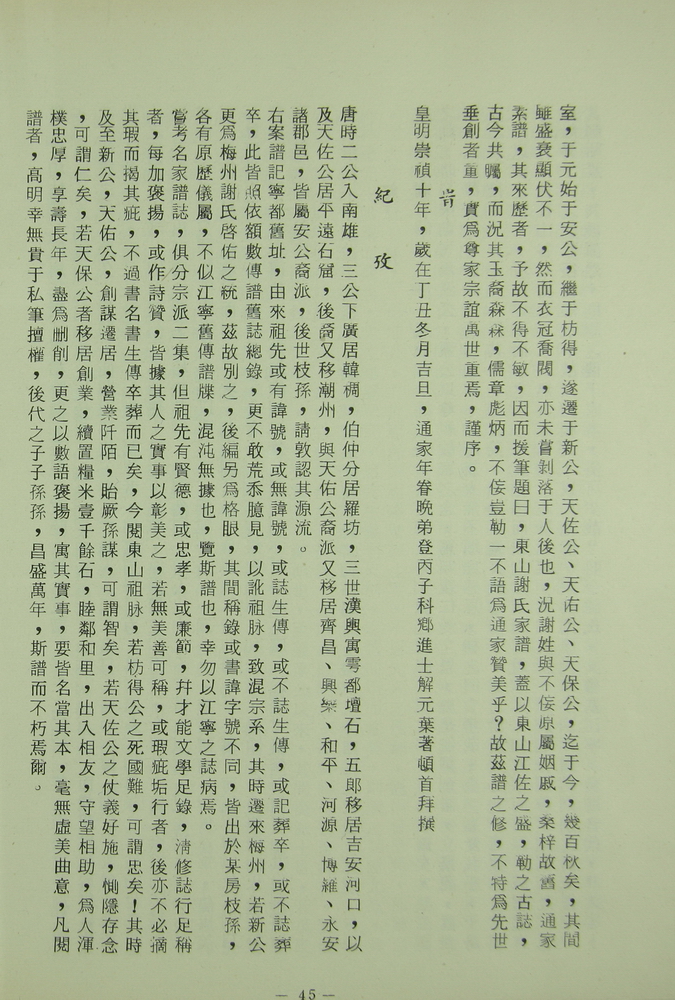 室，于元始于安公，繼于枋得，遂遷于新公，天佐公、天佑公、天保公，迄于今，幾百秋矣，其間
雖盛衰顯伏不一，然而衣冠喬閥，亦未嘗剝落于人後也，況謝姓與不佞原屬姻戚，桑梓故舊，通家
素譜，其來歷者，予故不得不敏，因而援筆題曰，東山謝氏家譜，蓋以東山江佐之盛，勒之古誌，
古今共矚，而況其玉裔森森，儒章彪炳，不佞豈勒一不語爲通家贊美乎？故茲譜之修，不特爲先世
垂創者重，實爲尊家宗誼禹世重焉，謹序。
旹
皇明崇禎十年，歲在丁丑冬月吉旦，通家年眷晚弟登丙子科鄉進士解元葉著頓首拜撰
紀攷
唐時二公入南雄，三公下廣居韓稠，伯仲分居羅坊，三世漢興寓雩都壇石，五郎移居吉安河口，以
及天佐公居平遠石窟，後裔又移潮州，與天佑公裔派又移居齊昌、興樂、和平、河源、博羅、永安
諸郡邑，皆屬安公裔派，後世枝孫，請敦認其源流。
右案譜記寧都舊址，由來祖先或有諱號，或無諱號，或誌生傳，或不誌生傳，或記葬卒，或不誌葬
卒，此皆照依額數傳譜舊誌總錄，更不敢荒忝臆見，以訛祖脉，致混宗系，其時遷來梅州，若新公
更爲梅州謝氏啓佑之統，茲故別之，後編另爲格眼，其間稱錄或書諱字號不同，皆出於某房枝孫，
各有原歷儀屬，不似江寧舊傳譜牒，混沌無據也，覽斯譜也，幸勿以江寧之誌病焉。
嘗考名家譜誌，俱分宗派二集，但祖先有賢德，或忠孝，或廉節，幷才能文學足錄，淸修誌行足稱
者，每加褒揚，或作詩贊，皆據其人之實事以彰美之，若無美善可稱，或瑕疵垢行者，後亦不必摘
其瑕而揭其疵，不過書名書生傳卒葬而已矣，今閱東山祖脉，若枋得公之死國難，可謂忠矣！其時
及至新公，天佑公，創謀遷居，營業阡陌，貽厥孫謀，可謂智矣，若天佐公之仗義好施，惻隱存念
，可謂仁矣，若天保公者移居創業，續置糧米壹千餘石，睦鄰和里，出入相友，守望相助，爲人渾
樸忠厚，享壽長年，盡爲刪削，更之以數語褒揚，寓其實事，要皆名當其本，毫無虛美曲意，凡閱
譜者，高明幸無責于私筆擅權，後代之子子孫孫，昌盛萬年，斯譜而不朽焉爾。
— 45 —